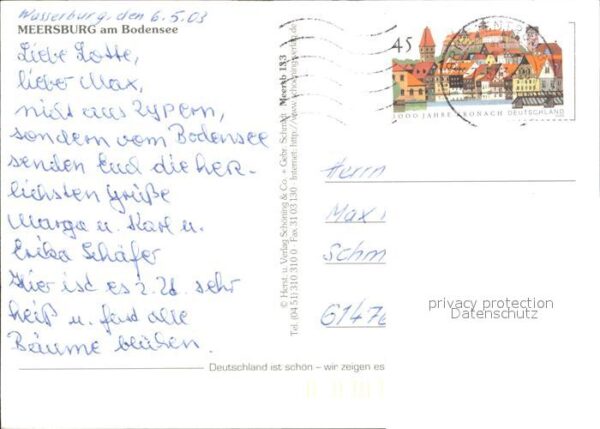 Wasserburg, den 6.5.03
MEERSBURG am Bodensee
Liebe Lotte,
lieber Max,
nicht aus Zypern,
sondern vom Bodensee
senden Euch die her-
lichsten Grüße
Marga u. Karl u.
Erika Schäfer
Hier ist es z. Zt. sehr
heiß u. fast alle
Bäume blühen.
© Herst. u. Verlag Schöning & Co. + Gebr. Schmidt
Meersb 133
Tel. (04 51) 310 310 0 Fax 31 03 130 Internet: http://www.
45
1000 JAHRE KRONACH
DEUTSCHLAND
Herrn
Max
Schm
61476
privacy protection
Datenschutz
Deutschland ist schön – wir zeigen es